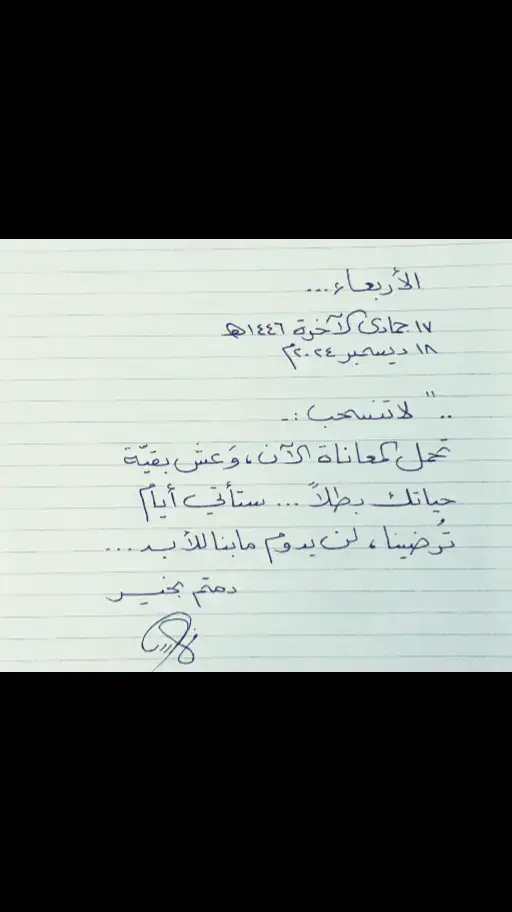 الأربعاء...
١٧ جمادى الآخرة ١٤٤٦هـ
١٨ ديسمبر ٢٠٢٤م
.." لا تنسحب :ـ
تحمل المعاناة الآن، وَعش بقيّة
حياتك بطلاً... ستأتي أيام
تُرضينا، لن يدوم مابنا للأبد...
دمتم بخير